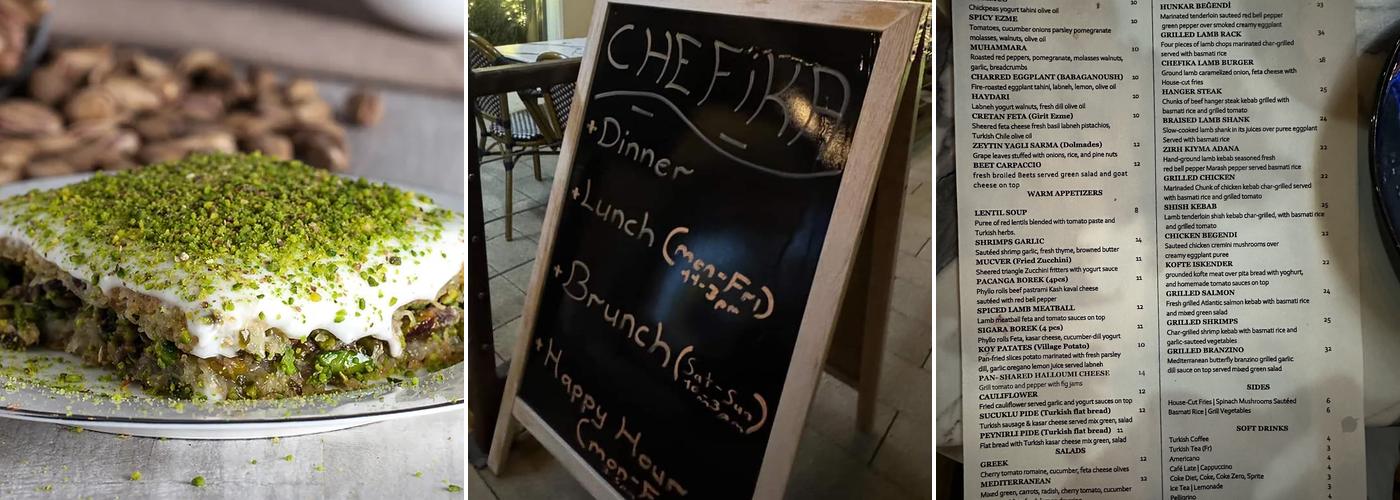 CHEFiKA
+Dinner
+Lunch (mon-Fri)
11-3pm
+Brunch (Sat-Sun)
+Happy Hour
(mon-F
Chickpeas yogurt tahini olive oil 10
SPICY EZME 10
Tomatoes, cucumber onions parsley pomegranate
molasses, walnuts, olive oil
MUHAMMARA 10
Roasted red peppers, pomegranate, molasses walnuts,
garlic, breadcrumbs
CHARRED EGGPLANT (BABAGANOUSH) 10
Fire-roasted eggplant tahini, labneh, lemon, olive oil
HAYDARI 10
Labneh yogurt walnuts, fresh dill olive oil
CRETAN FETA (Girit Ezme) 10
Sheered feta cheese fresh basil labneh pistachios,
Turkish Chile olive oil
ZEYTIN YAGLI SARMA (Dolmades) 12
Grape leaves stuffed with onions, rice, and pine nuts
BEET CARPACCIO 12
fresh broiled Beets served green salad and goat
cheese on top
WARM APPETIZERS
LENTIL SOUP 8
Puree of red lentils blended with tomato paste and
Turkish herbs.
SHRIMPS GARLIC 14
Sautéed shrimp garlic, fresh thyme, browned butter
MUCVER (Fried Zucchini) 11
Sheered triangle Zucchini fritters with yogurt sauce
PACANGA BOREK (4pcs) 11
Phyllo rolls beef pastrami Kash kaval cheese
sautéed with red bell pepper
SPICED LAMB MEATBALL 12
Lamb meatball feta and tomato sauces on top
SIGARA BOREK (4 pcs) 11
Phyllo rolls Feta, kasar cheese, cucumber-dill yogurt
KOY PATATES (Village Potato) 10
Pan-fried slices potato marinated with fresh parsley
dill, garlic oregano lemon juice served labneh
PAN- SHARED HALLOUMI CHEESE 14
Grill tomato and pepper with fig jams
CAULIFLOWER 12
Fried cauliflower served garlic and yogurt sauces on top
SUCUKLU PIDE (Turkish flat bread) 12
Turkish sausage & kasar cheese served mix green, salad
PEYNIRLI PIDE (Turkish flat bread) 11
Flat bread with Turkish kasar cheese mix green, salad
SALADS
GREEK 12
Cherry tomato romaine, cucumber, feta cheese olives
MEDITERRANEAN 12
Mixed green, carrots, radish, cherry tomato, cucumber
HUNKAR BEĞENDİ 23
Marinated tenderloin sauteed red bell pepper
green pepper over smoked creamy eggplant
GRILLED LAMB RACK 34
Four pieces of lamb chops marinated char-grilled
served with basmati rice
CHEFIKA LAMB BURGER 18
Ground lamb caramelized onion, feta cheese with
House-cut fries
HANGER STEAK 25
Chunks of beef hanger steak kebab grilled with
basmati rice and grilled tomato
BRAISED LAMB SHANK 26
Slow-cooked lamb shank in its juices over puree eggplant
Served with basmati rice
ZIRH KIYMA ADANA 22
Hand-ground lamb kebab seasoned fresh
red bell pepper Marash pepper served basmati rice
GRILLED CHICKEN 22
Marinaded Chunk of chicken kebab char-grilled served
with basmati rice and grilled tomato
SHISH KEBAB 25
Lamb tenderloin shish kebab char-grilled, with basmati rice
and grilled tomato
CHICKEN BEGENDI 22
Sauteed chicken cremini mushrooms over
creamy eggplant puree
KOFTE ISKENDER 22
grounded kofte meat over pita bread with yoghurt,
and homemade tomato sauces on top
GRILLED SALMON 24
Fresh grilled Atlantic salmon kebab with basmati rice
and mixed green salad
GRILLED SHRIMPS 25
Char-grilled shrimp kebab with basmati rice and
garlic-sauteed vegetables
GRILLED BRANZINO 32
Mediterranean butterfly branzino grilled garlic
dill sauce on top served mixed green salad
SIDES
House-Cut Fries | Spinach Mushrooms Sautéed 6
Basmati Rice | Grill Vegetables 6
SOFT DRINKS
Turkish Coffee 4
Turkish Tea (Fr) 3
Americano 4
Café Late | Cappuccino 4
Coke Diet, Coke, Coke Zero, Sprite 3
Ice Tea | Lemonade 3
Pellegrino